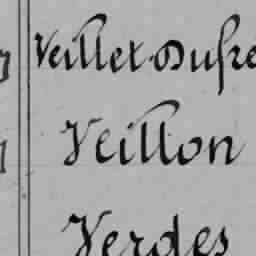 Veillet-Dufre
Veillon
Verdes